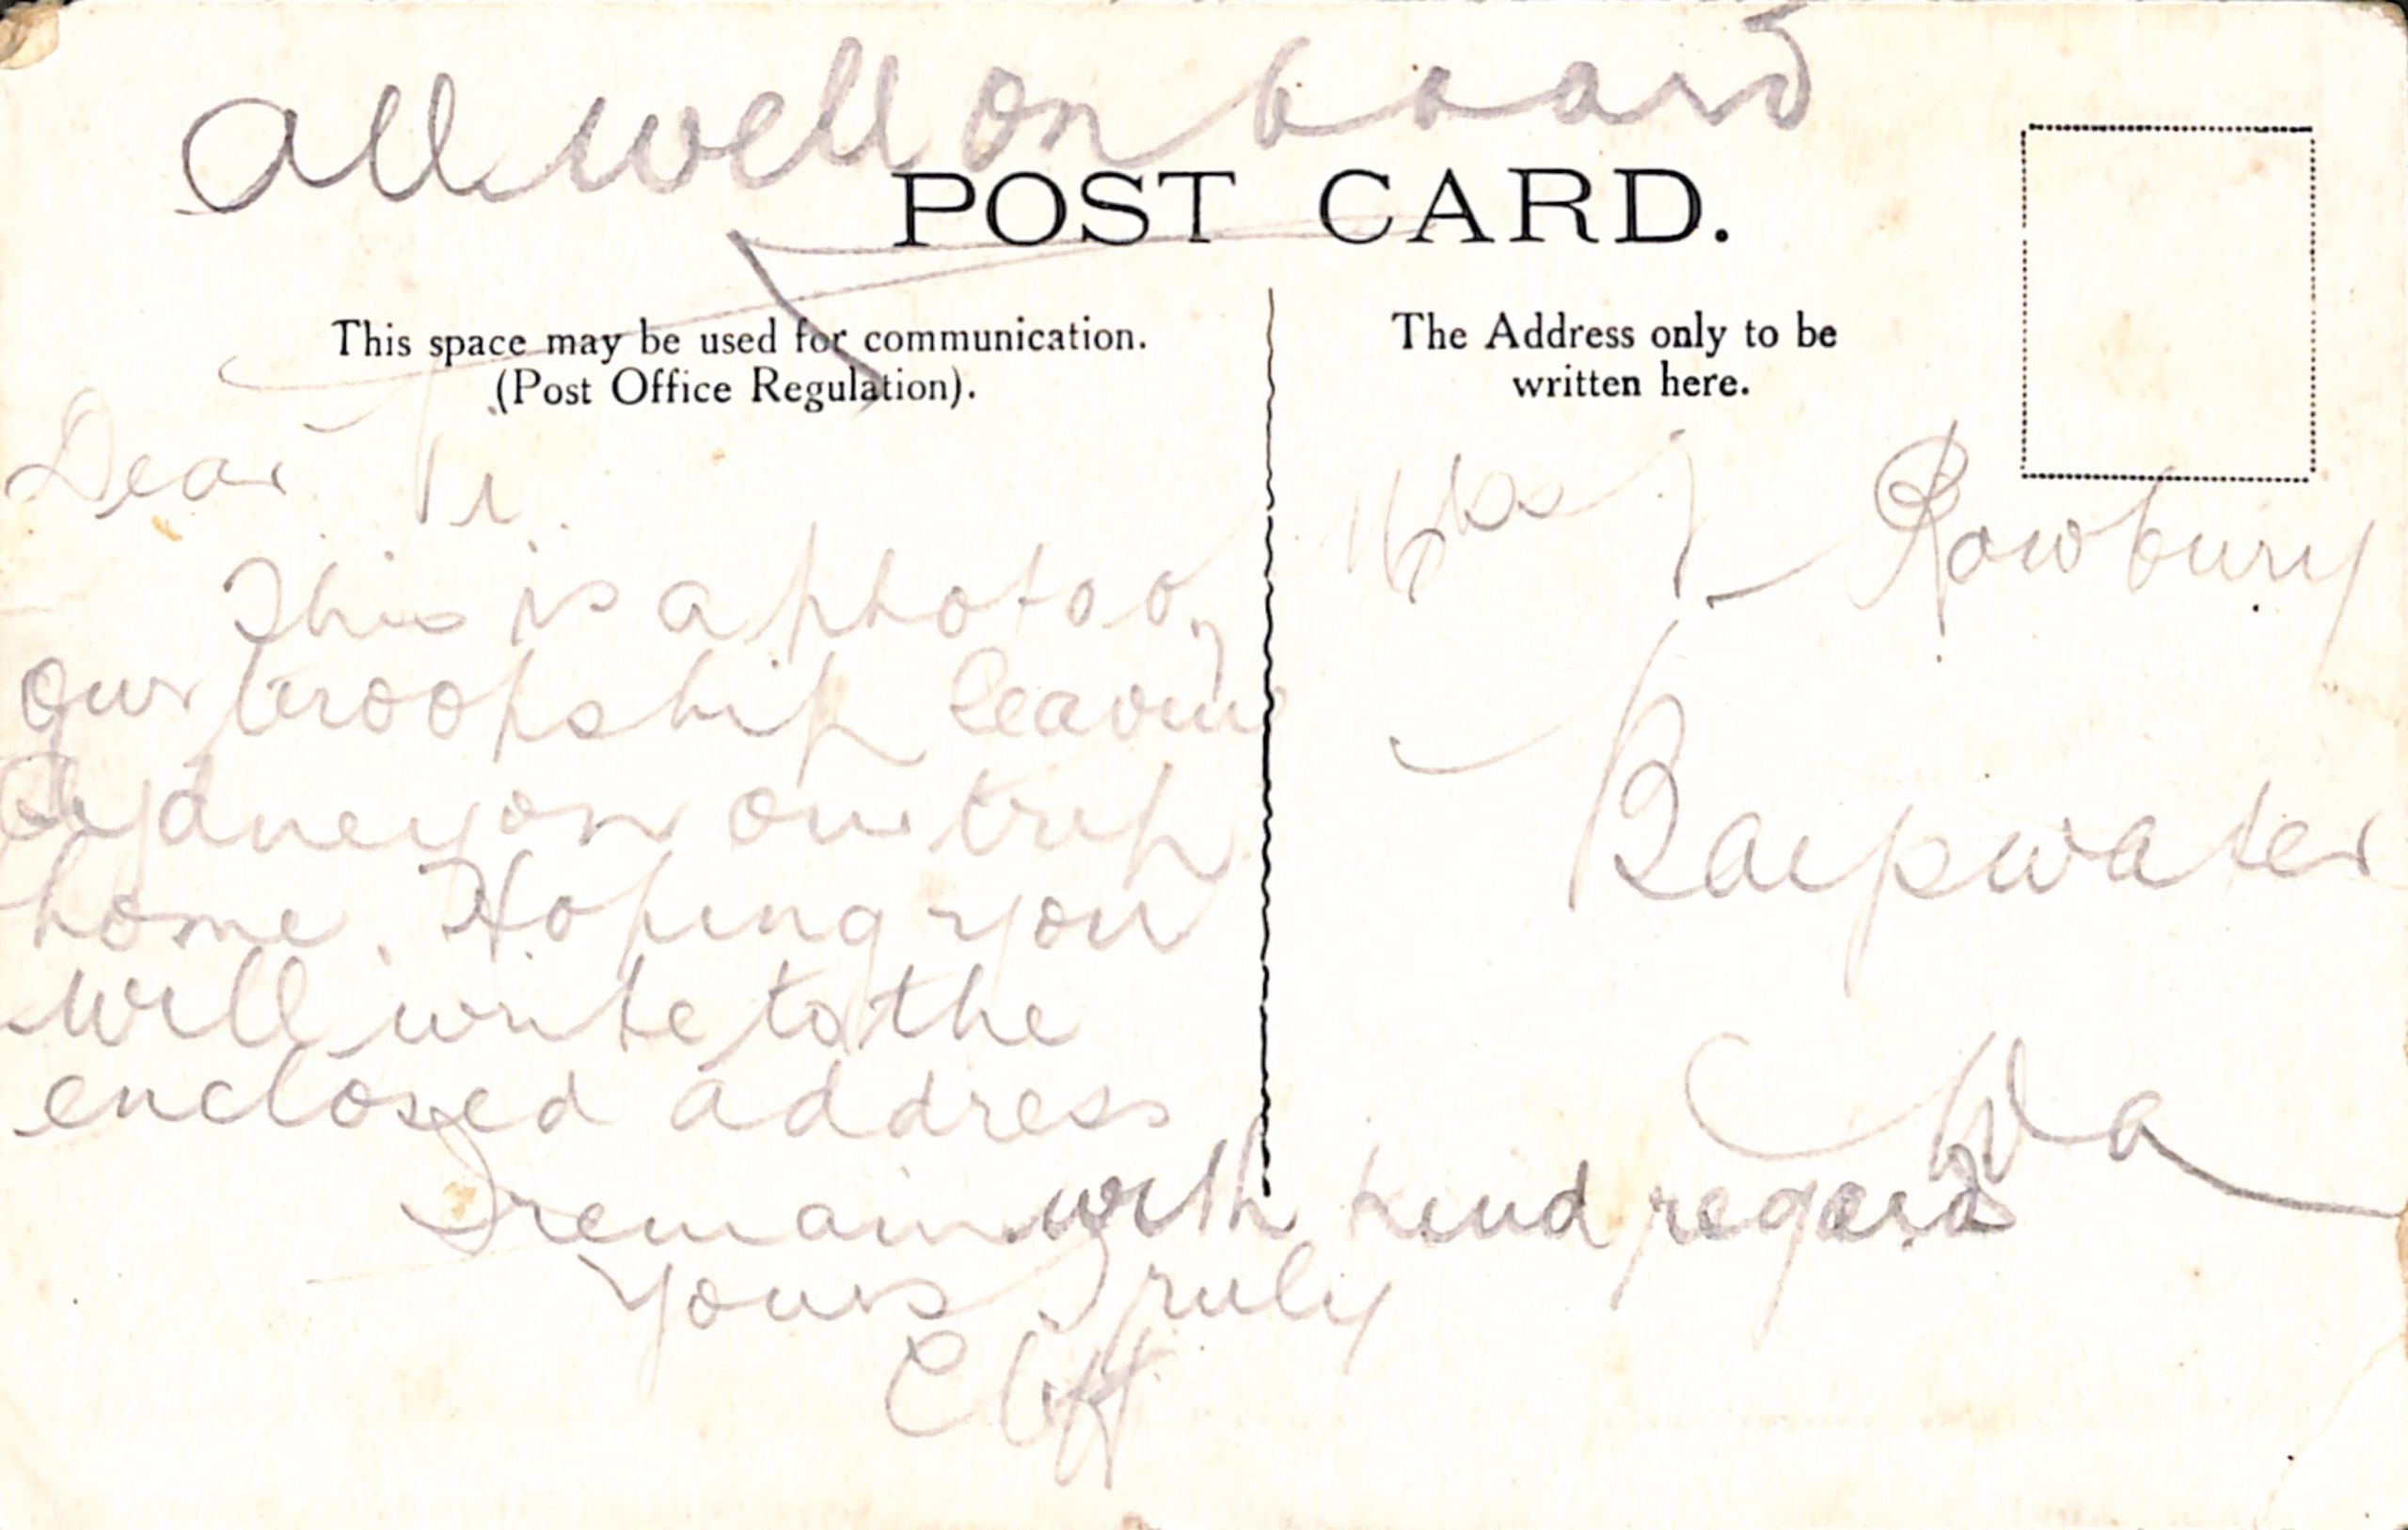 All well on board
POST CARD.
This space may be used for communication.
(Post Office Regulation).
The Address only to be
written here.
Dear Vi
This is a photo of
our troopship leaving
Sydney on our trip
home. Hoping you
will write to the
enclosed address
I remain with kind regard
Yours Truly
Cliff
Rowbury
Bayswater
Wa